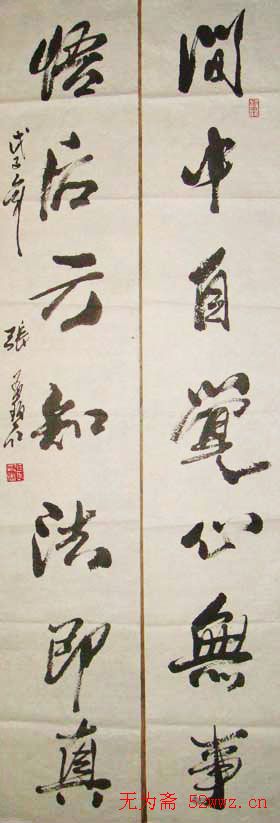 閒中自覺心無事
悟后方知法即真
戊子年 張
无为斋 52wwz.cn